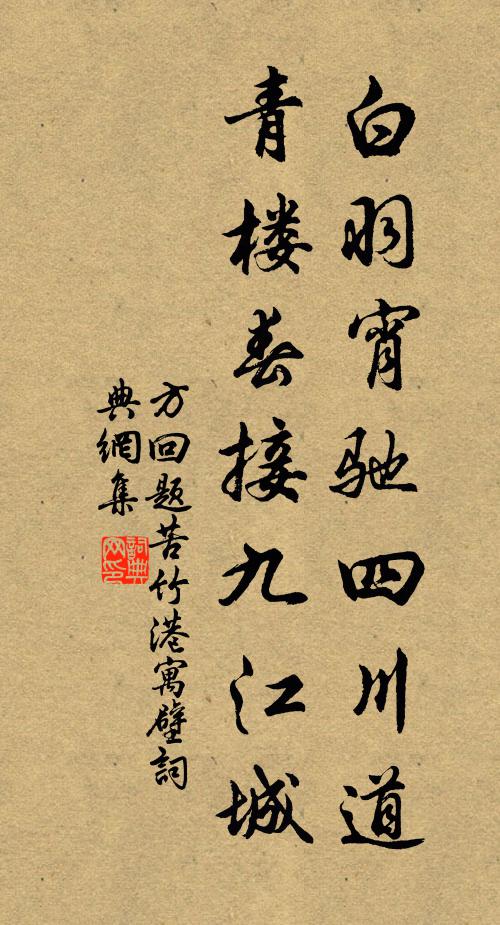 白羽宵驰四川道
青楼春接九江城
方回题苦竹港寓壁詞
典網集
詞典網印